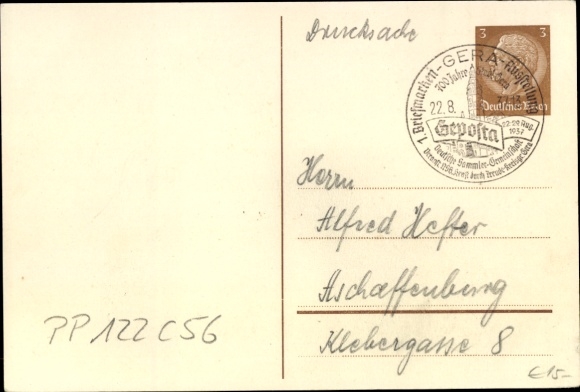 Drucksache
3 3
Deutsches Reich
1. Briefmarken-GERA-Ausstellung
700 Jahre
22.8.
Geposta
22-29 Aug.
1937
Deutsche Sammler-Gemeinschaft
Herrn
Alfred Hefter
Aschaffenburg
Klebergasse 8
PP 122 C56
€15-